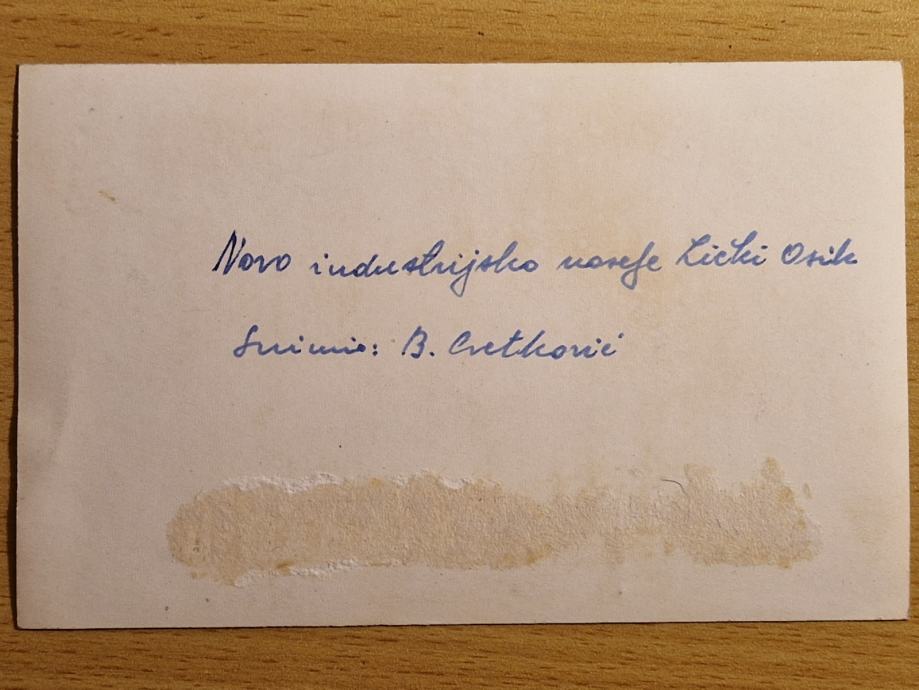 Novo industrijsko naselje Lički Osik
Snimio: B. Cvetković